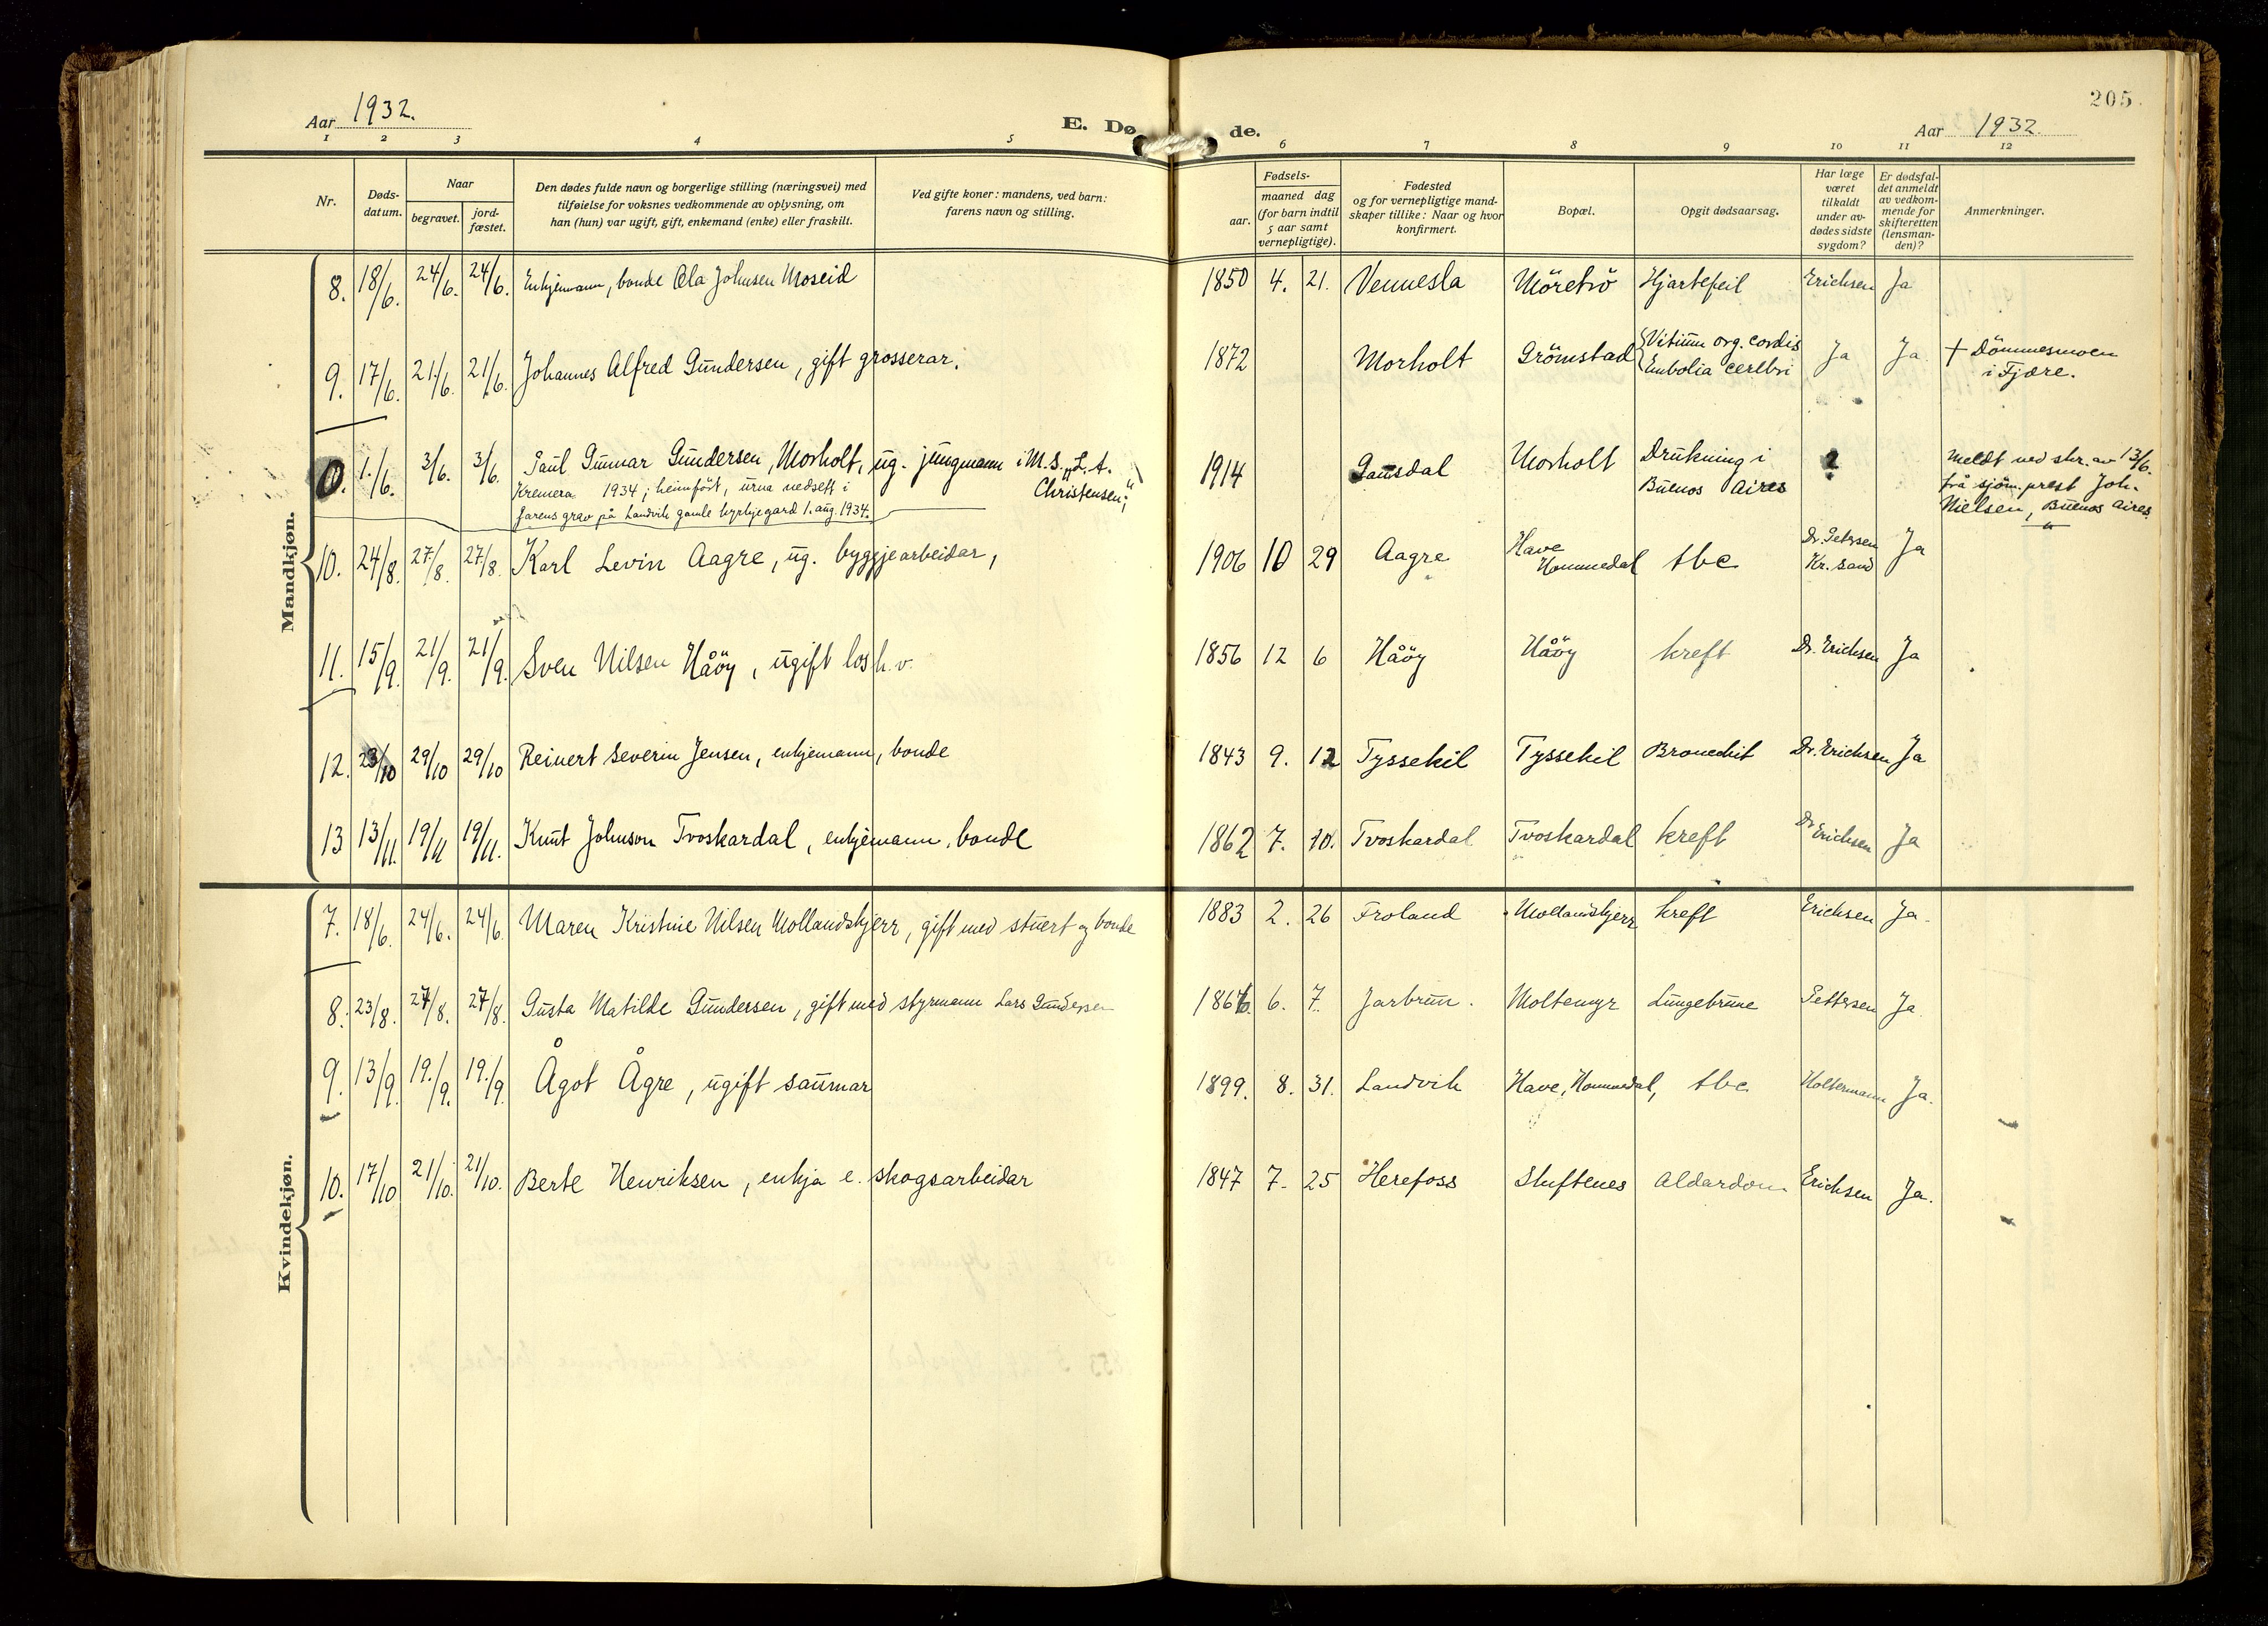 Aar 1932.
E. Dø de.
Aar 1932.
205.
1 2 3 4 5 6 7 8 9 10 11 12
Nr.
Døds-
datum.
Naar
begravet.
jord-
fæstet.
Den dødes fulde navn og borgerlige stilling (næringsvei) med
tilføielse for voksnes vedkommende av oplysning, om
han (hun) var ugift, gift, enkemand (enke) eller fraskilt.
Ved gifte koner: mandens, ved barn:
farens navn og stilling.
Fødsels-
aar.
maaned dag
(for barn indtil
5 aar samt
vernepligtige).
Fødested
og for vernepligtige mand-
skaper tillike: Naar og hvor
konfirmert.
Bopæl.
Opgit dødsaarsag.
Har læge
været
tilkaldt
under av-
dødes sidste
sygdom?
Er dødsfal-
det anmeldt
av vedkom-
mende for
skifteretten
(lensman-
den)?
Anmerkninger.
Mandkjøn.
8. 18/6. 24/6. 24/6. Enkjemann, bonde Ola Johnsen Moseid 1850 4. 21. Vennesla Möretrö Hjartefeil Erichsen Ja
9. 17/6. 21/6. 21/6. Johannes Alfred Gundersen, gift grosserar. 1872 Morholt Grömstad Vitium org. cordis Ja Ja. † Dömmesmoen
Embolia cerebri i Fjære.
0. 1./6. 3/6. 3/6. Paul Gunnar Gundersen, Morholt, ug. jungmann i M.S. „L. A. 1914 Gausdal Morholt Drukning i Meldt ved skr. av 13/6.
Kremera 1934; heimfört, urna nedsett i Christensen"; Buenos Aires frå sjöm.prest Joh.
farens grav på Landvik gamle kyrkjegard 1. aug. 1934. Nielsen, Buenos Aires
10. 24/8. 27/8. 27/8. Karl Levin Aagre, ug. byggjearbeidar, 1906 10 29 Aagre Have Hommedal tbc Dr. Petersen Kr. sand Ja
11. 15/9. 21/9. 21/9. Sven Nilsen Håöy, ugift los h.v. 1856 12 6 Håöy Håöy kreft Dr. Erichsen Ja
12. 23/10 29/10 29/10 Reinert Severin Jensen, enkjemann, bonde 1843 9. 12 Tyssekil Tyssekil Bronchit Dr. Erichsen Ja
13 13/11. 19/11 19/11. Knut Johnson Tvoskardal, enkjemann, bonde 1862 7. 10. Tvoskardal Tvoskardal kreft Dr Erichsen Ja
Kvindekjøn.
7. 18/6. 24/6. 24/6. Maren Kristine Nilsen Mollandskjerr, gift med stuert og bonde 1883 2. 26 Froland Mollandskjerr kreft Erichsen Ja.
8. 23/8. 27/8. 27/8. Gusta Matilde Gundersen, gift med styrmann Lars Gundersen 6. 7. Jarbrun. Moltemyr Lungebrune Pettersen Ja.
9. 13/9. 19./9. 19./9. Ågot Ågre, ugift saumar 1899. 8. 31. Landvik Have, Hommedal, tbc Holtermann Ja.
10. 17/10 21/10. 21/10. Berte Henriksen, enkja e. skogsarbeidar 1847 7. 25 Herefoss Skuftenes Aldardom Erichsen Ja.